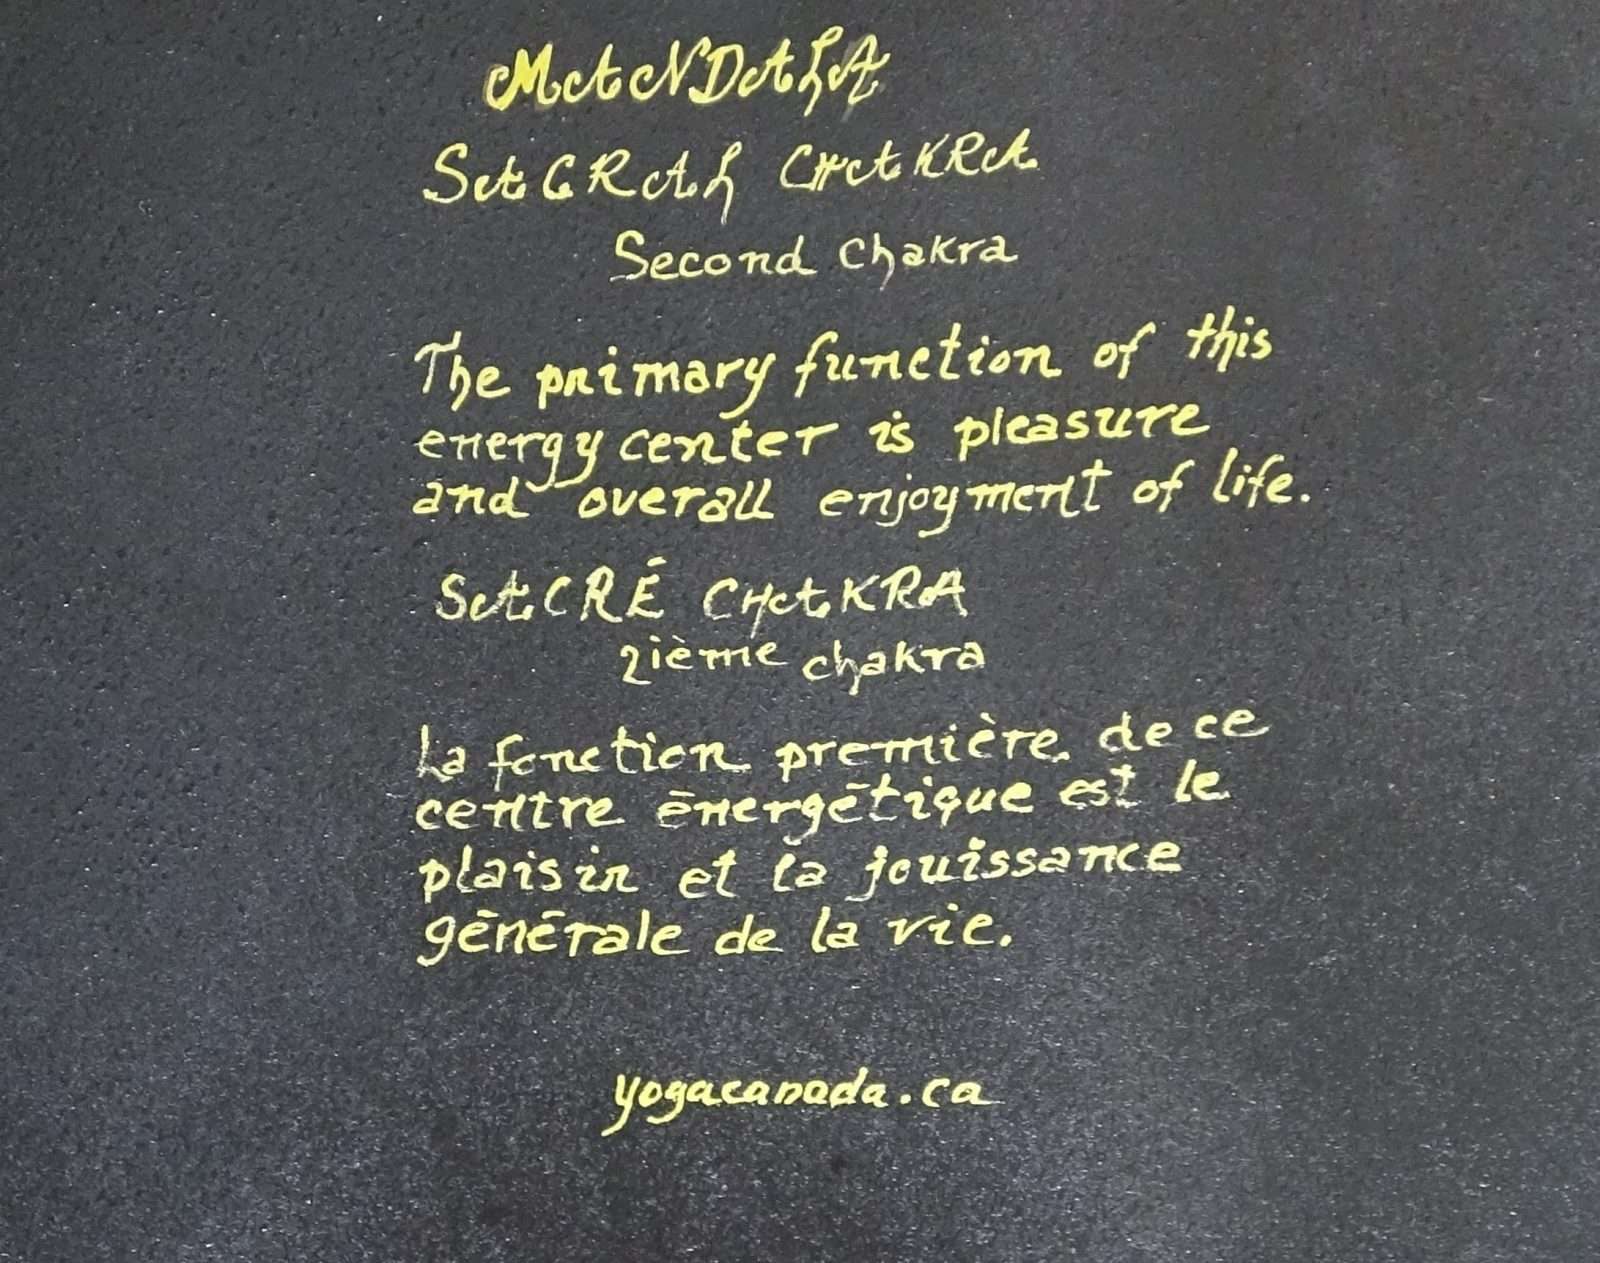 MANDALA
SACRAL CHAKRA
Second chakra
The primary function of this
energy center is pleasure
and overall enjoyment of life.
SACRÉ CHAKRA
2ième chakra
La fonction première de ce
centre énergétique est le
plaisir et la jouissance
générale de la vie.
yogacanada.ca